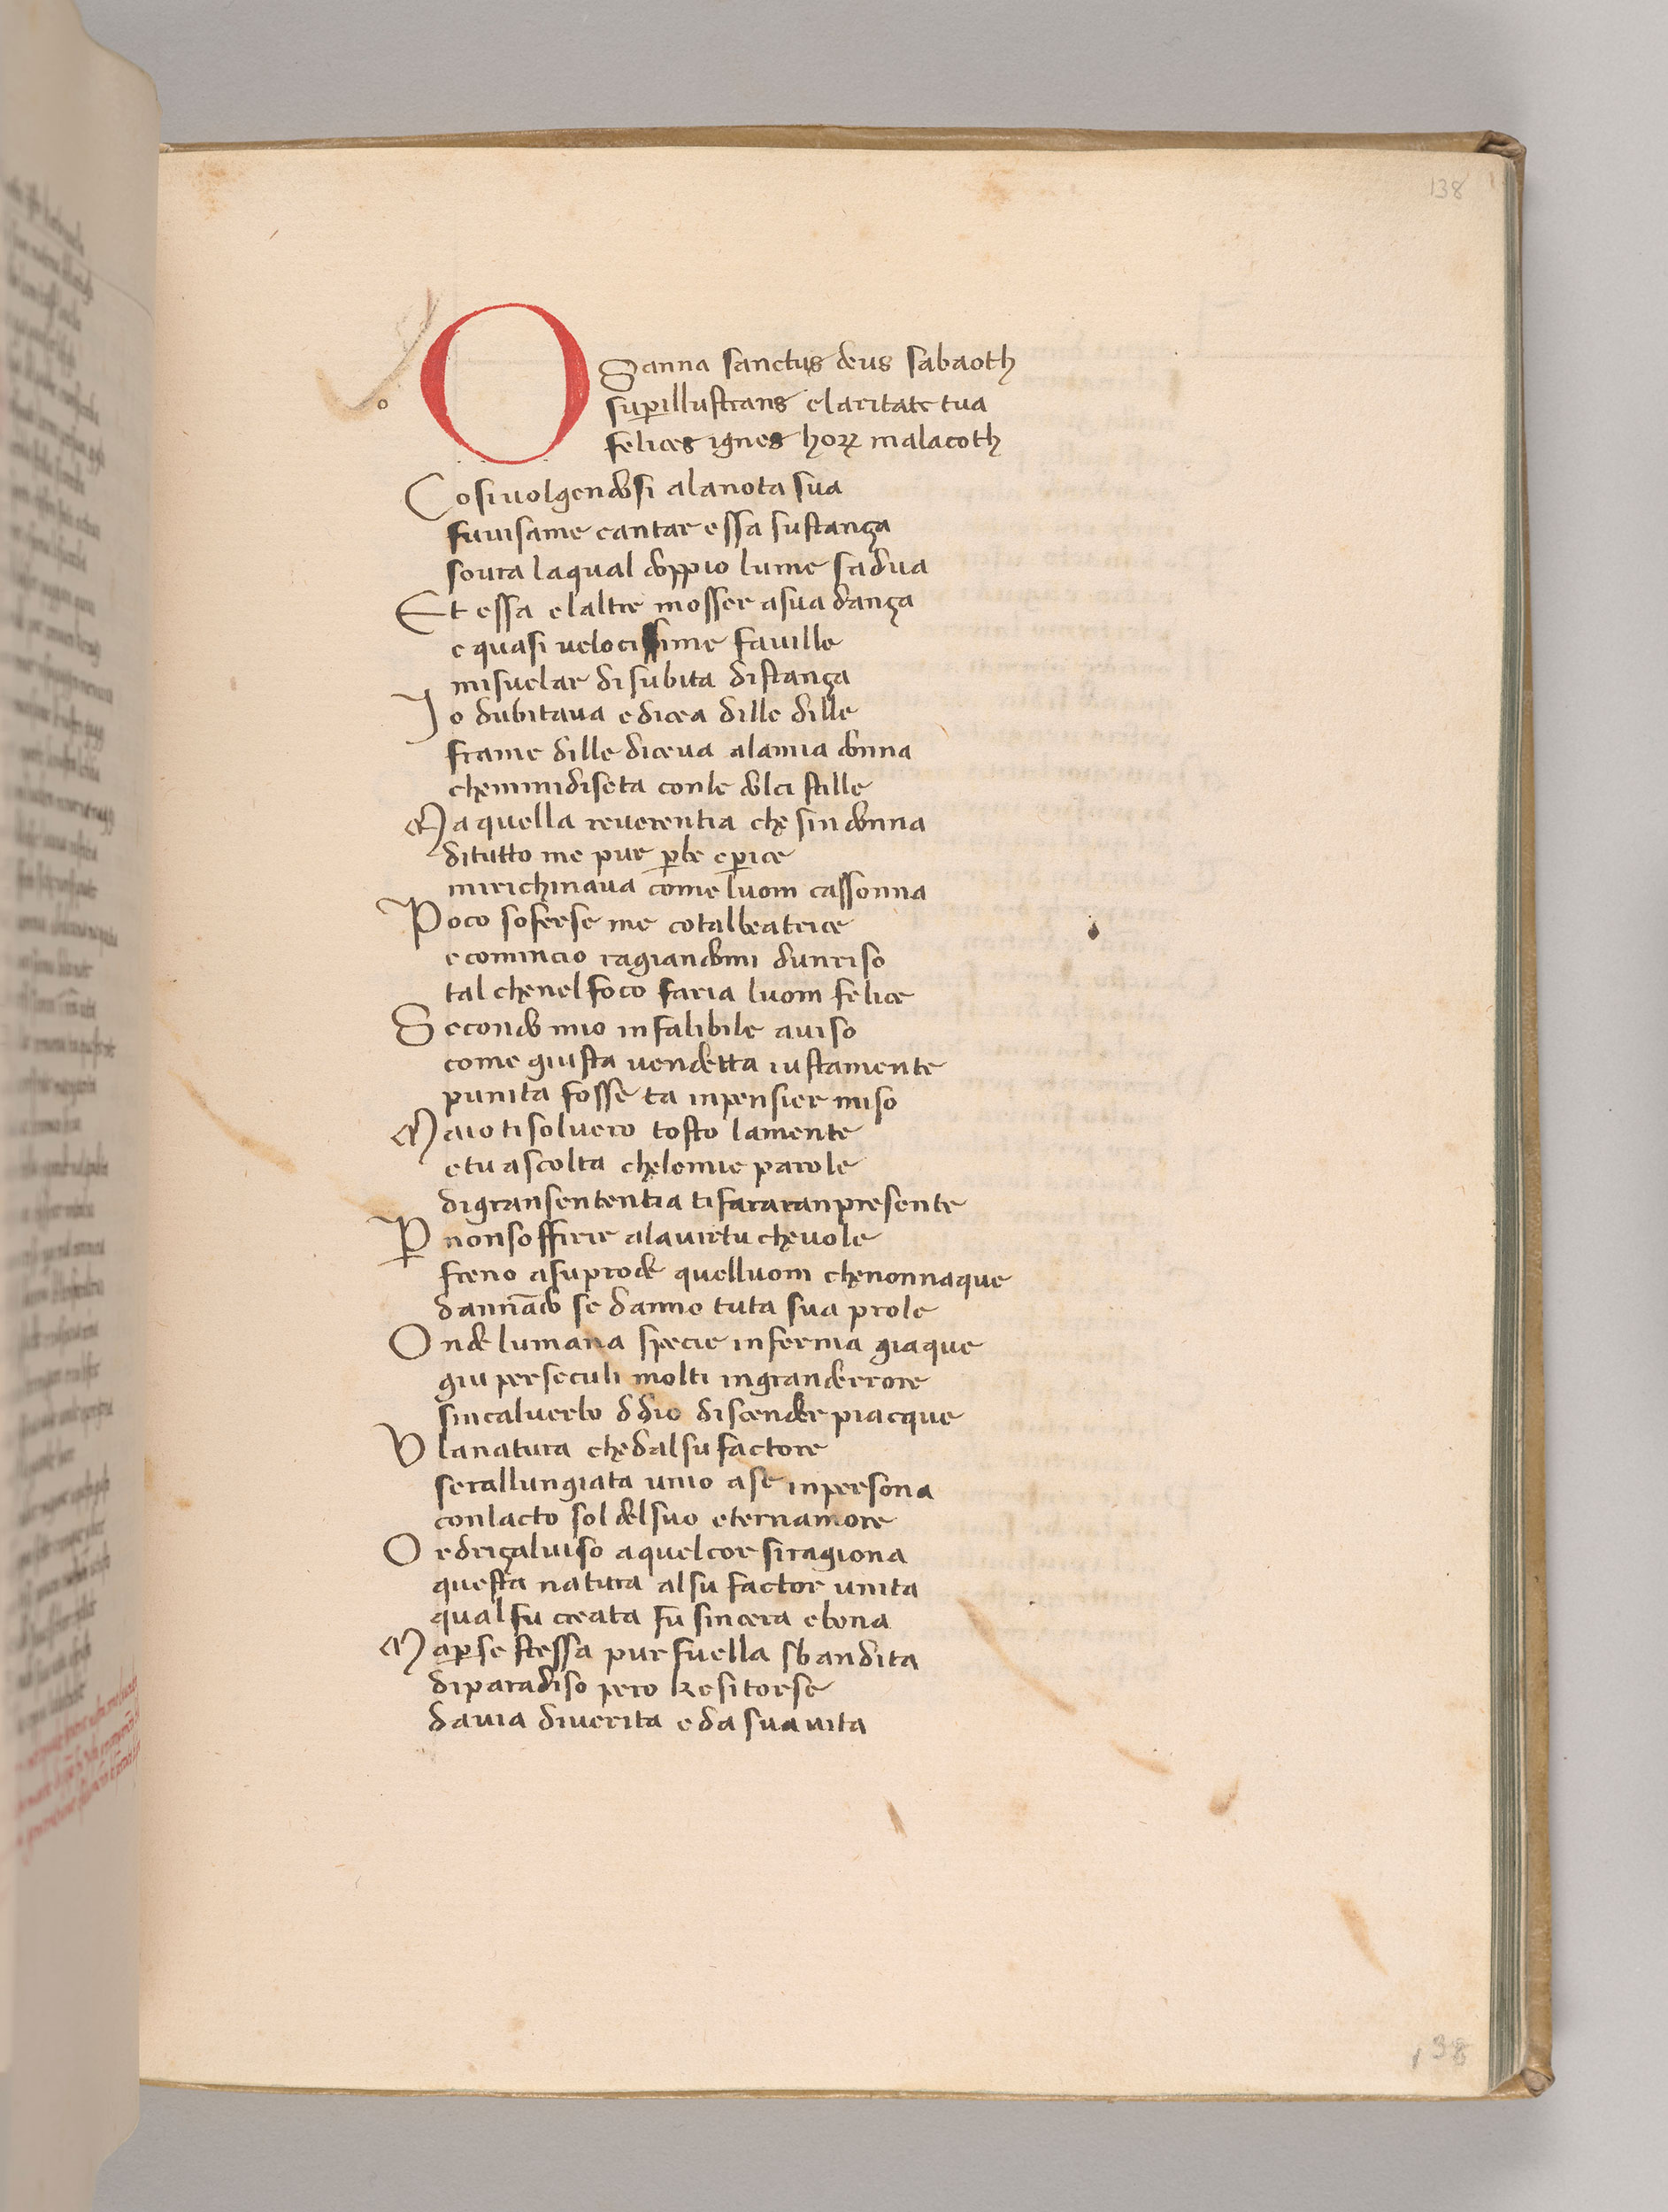 138
OSanna sanctus deus sabaoth
superillustrans claritate tua
felices ignes horꝝ malacoth
Cosi uolgendosi alanota sua
fu uisa me cantar essa sustança
soura laqual doppio lume sadua
Et essa elaltre mosser asua dança
e quasi uelocissime fauille
misuelar di subita distança
Io dubitaua edicea dille dille
frame dille diceua alamia donna
chemmidiseta conle dolci stille
Ma quella reuerentia che sindonna
ditutto me pur ꝑ be e ꝑ ice
mirichinaua come luom cassonna
Poco soferse me cotal beatrice
e comincio ragiandomi dunriso
tal chenel foco faria luom felice
Secondo mio infalibile auiso
come giusta uendetta iustamente
punita fosse ta inpensier miso
Ma io ti soluero tosto lamente
e tu ascolta che le mie parole
di gran sententia ti fararan presente
Ꝑ non soffrire ala uirtu che uole
freno a suprode quelluom che non naque
dannādo se danno tuta sua prole
Onde lumana specie inferma giaque
giu per seculi molti in grande errore
sin cal uerbo ddio discender piacque
V la natura che dal su factore
sera llungiata unio a se in persona
con lacto sol del suo eterna more
Or driçal uiso a quel cor si ragiona
questa natura al su factor unita
qual fu creata fu sincera e bona
Ma ꝑ se stessa pur fu ella sbandita
di paradiso pero ke si torse
da uia di uerita e da sua uita
138